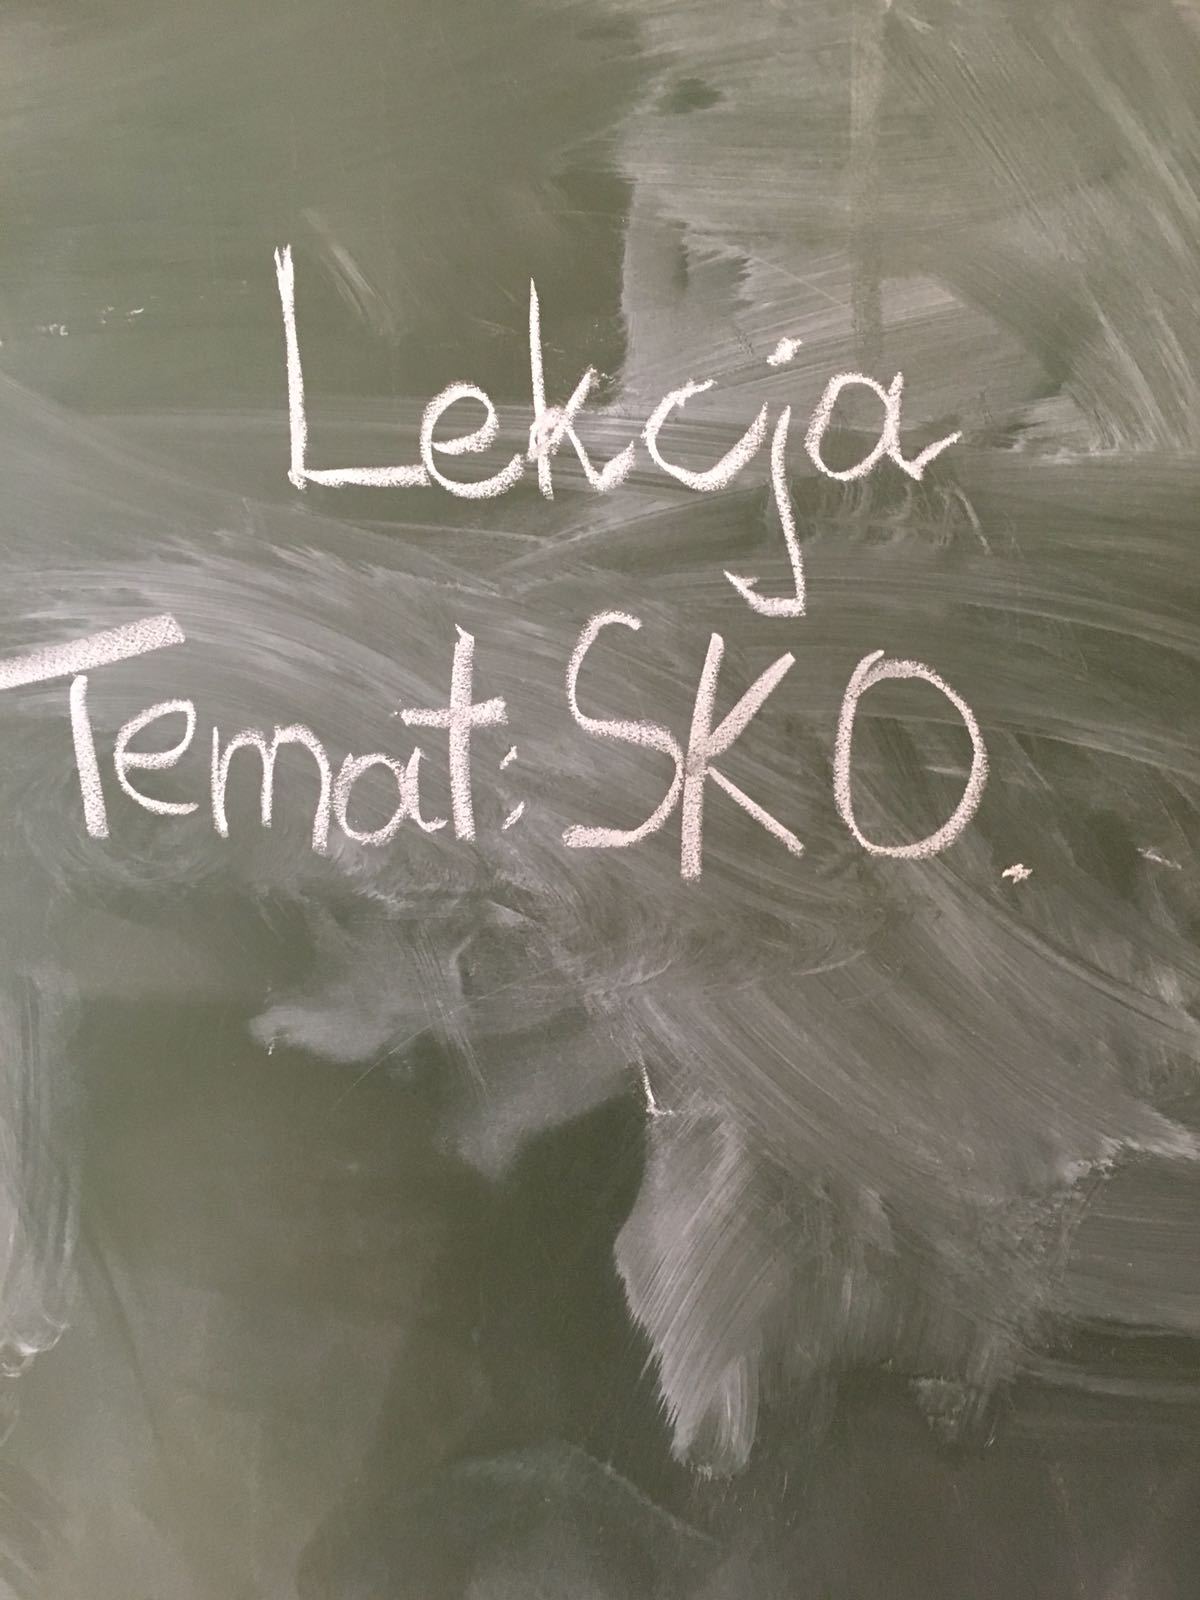 Lekcja
Temat: SKO.